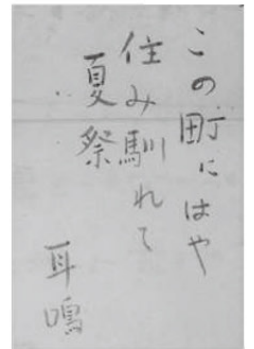 この町にはや
住み馴れて
夏祭
耳鳴